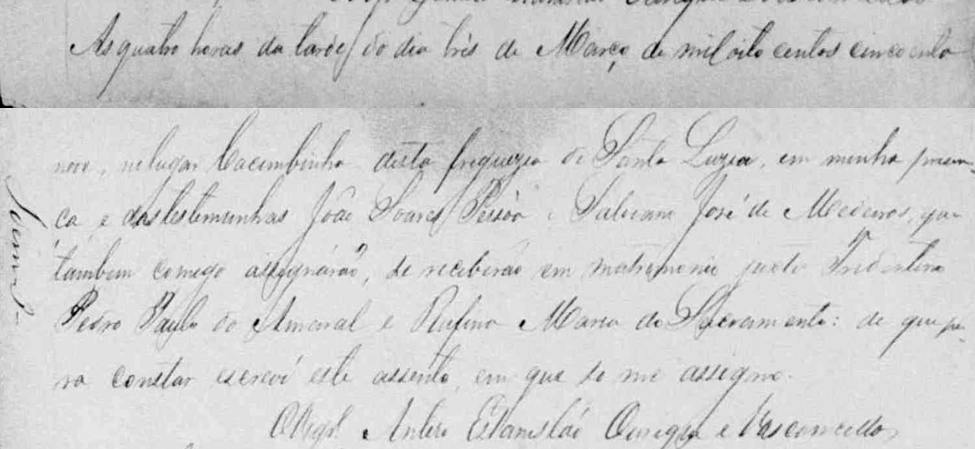 As quatro horas da tarde do dia três de Março de mil oito centos cincoenta
nove, no lugar Cacimbinha desta freguezia de Santa Luzia, em minha presen-
ça, e das testemunhas João Soares Pessôa e Salviano José de Medeiros, que
tambem comego assignárão, se receberão em matrimonio juxto Tridentino
Pedro Paulo do Amaral e Rufina Maria do Sacramento: de que pa-
ra constar escrevi este assento, em que so me assigno.
O Vigr.º Antero Estanisláo Ourique e Vasconcellos